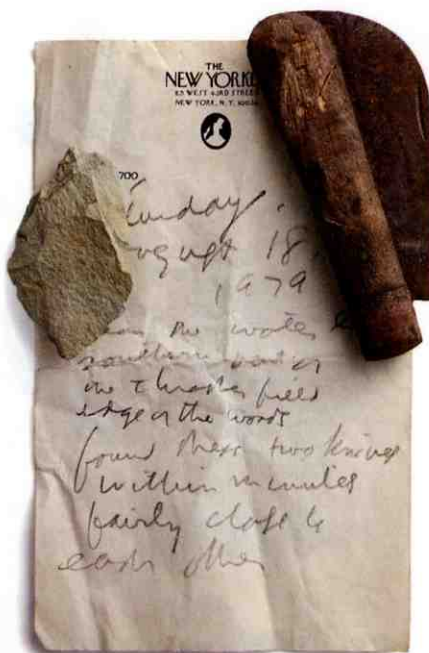 THE
NEW YORKE
25 WEST 43RD STREE
NEW YORK, N.Y. 10036
700
unday,
ugust 18,
1979
the water
southern
the thrasher field
edge of the woods
found these two knives
within minutes
fairly close to
each other